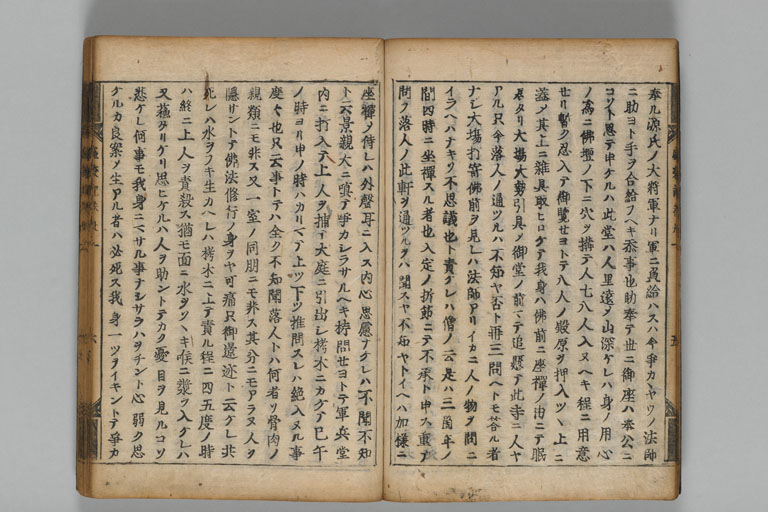 奉ル源氏ノ大将軍ナリ軍ニ負給ハスハ今争カヤツノ法師
ニ助ヨト手ヲ合給フヘキ忝事也助奉テ世ニ御座ハ奉公ニ
コソト思テ申ケルハ此堂ハ人里遠ノ山深ケレハ身ノ用心
ノ為ニ佛壇ノ下ニ穴ヲ搆テ人七八人入ヌヘキ程ニ用意
セリ暫ク忍入テ御覧セヨトテ八人ノ殿原ヲ押入ツヽ上ニ
蓋ノ其上ニ雑具取ヒロケテ我身ハ佛前ニ座禅ノ由ニテ眠
居タリ大場大勢引具メ御堂ノ前マテ追懸テ此寺ニ人ヤ
アル只今落人ノ通ツルハ不知ヤ否ト再三問ヘトモ答ル者
ナシ大場打寄佛前ヲ見レハ法師アリイカニ人ノ物ヲ問ニ
イラヘハナキソ不思議也ト責ケレハ僧ノ云是ハ三箇年ノ
間四時ニ坐禅スル者也入定ノ折節ニテ不承ト申ス重テ
問フ落人ノ此軒ヲ通ツルヲハ聞スヤ不知ヤトイヘハ加様ニ
座禅ノ侍レハ外聲耳ニ入ス内心思慮ナケレハ不聞不知
ト云景親大ニ嗔テ争カシラサルヘキ拷問セヨトテ軍兵堂
内ニ打入テ上人ヲ捕テ大庭ニ引出シ拷木ニカケテ巳午
ノ時ヨリ申ノ時ハカリマテ上ツ下ツ推問スレハ絶入ヌル事
度々也只云事トテハ全ク不知聞落人トハ何者ソ骨肉ノ
親類ニモ非ス又一室ノ同朋ニモ非ス其分ニモアラヌ人ヲ
隠サントテ佛法修行ノ身ヲヤ可痛只御還迹ト云ケレ共
死レハ水ヲフキ生カヘレハ拷木ニ上テ責ル程ニ四五度ノ時
ハ終ニ上人ヲ責殺ス猶モ面ニ水ヲソヽキ喉ニ漿ヲ入ケレハ
又蘇タリケリ思ヒケルハ人ヲ助ントテカク憂目ヲ見ルコソ
悲ケレ何事モ我身ニマサル事ナシサラハヲチント心弱ク思
ケルカ良案メ生アル者ハ必死ス我身一ツヲイキントテ争カ